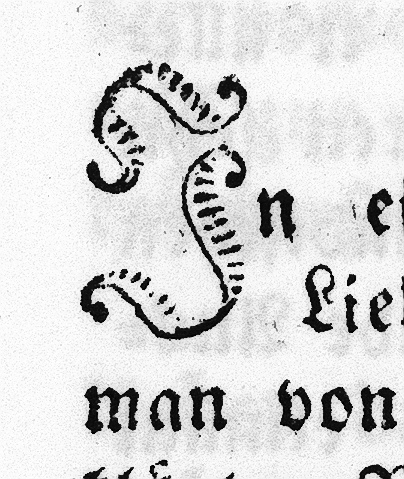 In ei
Lie
man von